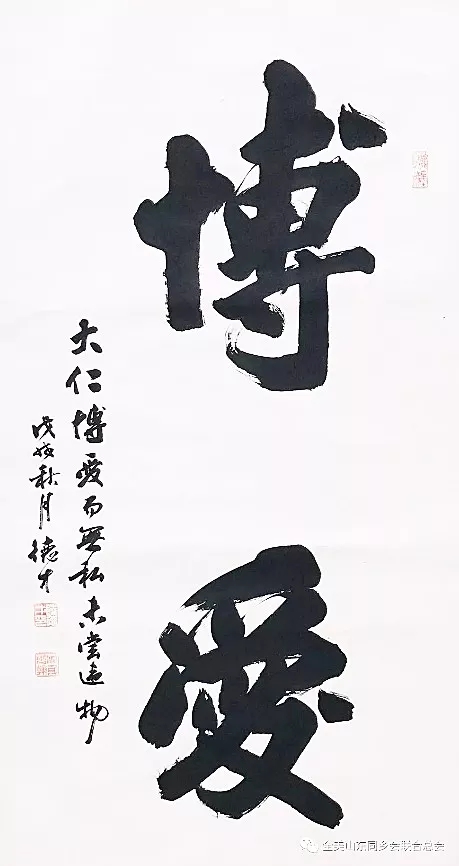 博愛
大仁博愛而無私未嘗遠物
戊戌秋月德才
全美山东同乡会联合总会